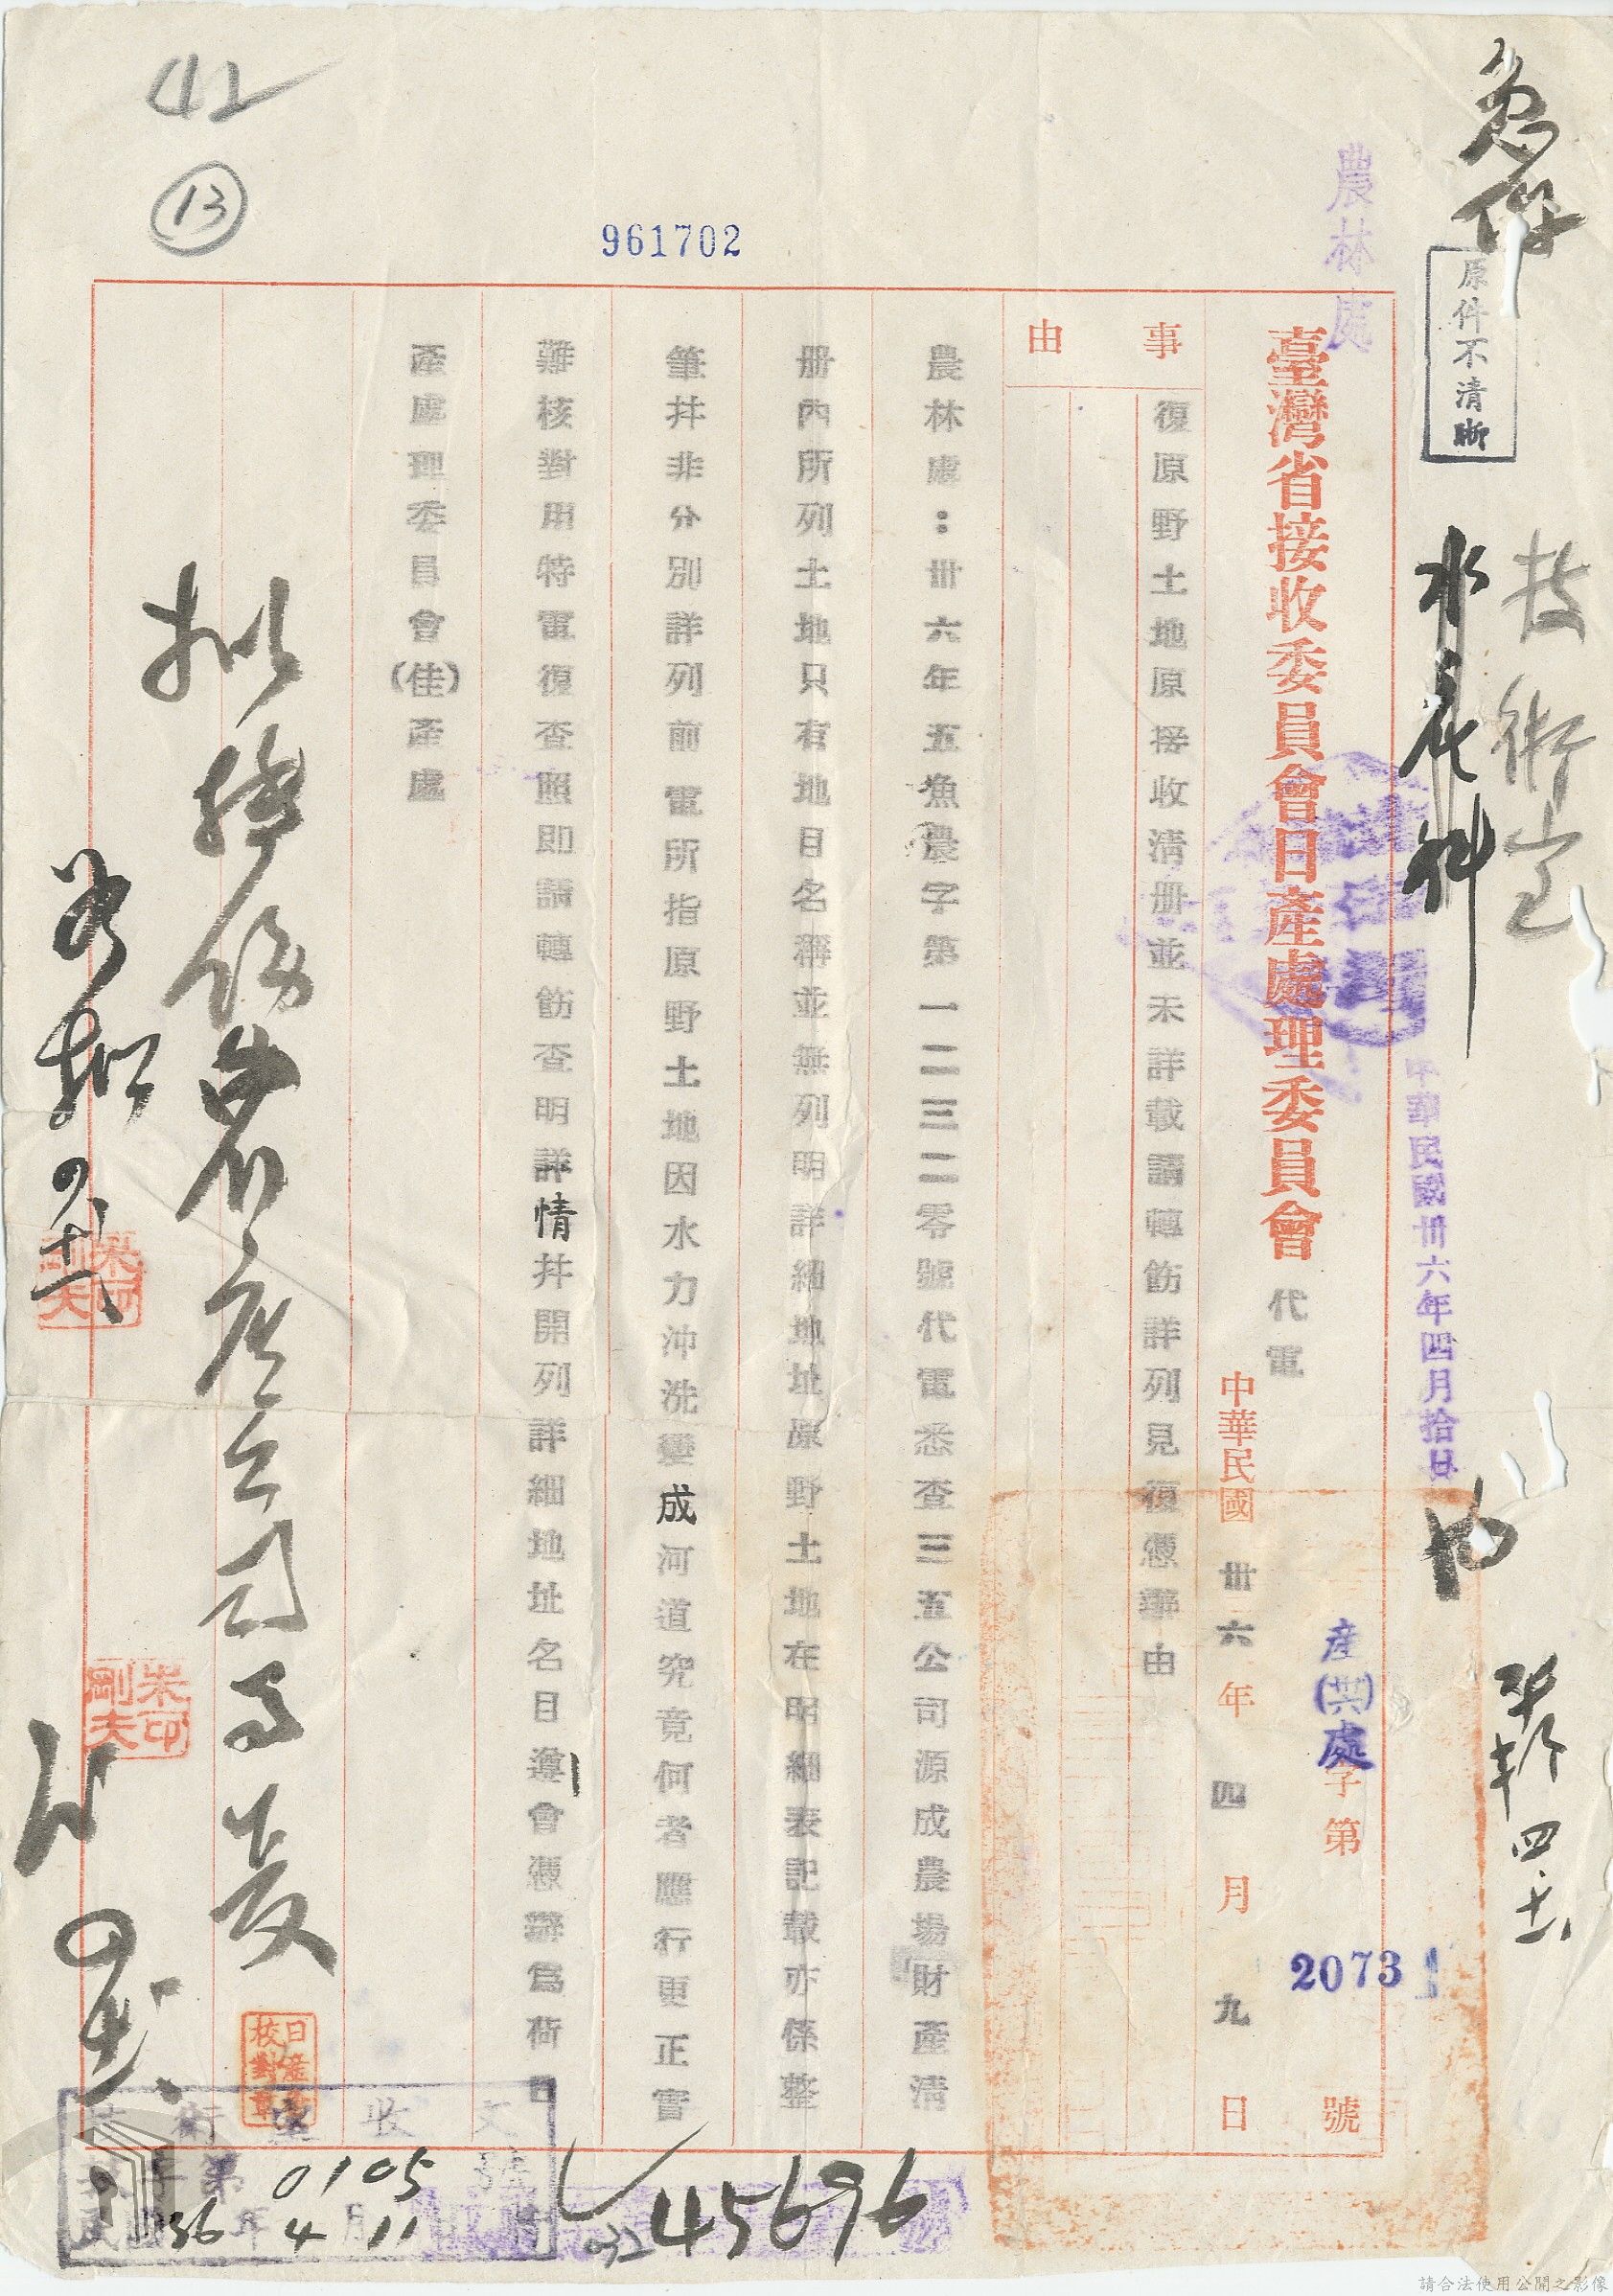 急件
原件不清晰
技術室
水產科
農林處
中華民國卅六年四月拾日
臺灣省接收委員會日產處理委員會代電
中華民國卅六年四月九日
產(共)處字第20731號
事由
復原野土地原接收清册並未詳載請轉飭詳列見復憑辦由
農林處：卅六年五漁農字第一二三二零號代電悉查三五公司源成農場財產清
册內所列土地只有地目名稱並無列明詳細地址原野土地在明細表記載亦係整
筆幷非分別詳列前電所指原野土地因水力沖洗變成河道究竟何者應行更正實
難核對用特電復查照即請轉飭查明詳情幷開列詳細地址名目遵會憑辦為荷日
產處理委員會(佳)產處
961702
42
13
四、十一
朱剛夫印
朱剛夫印
日產會校對章
技術室收文
字第0105號
民國36年4月11日
03245696
請合法使用公開之影像